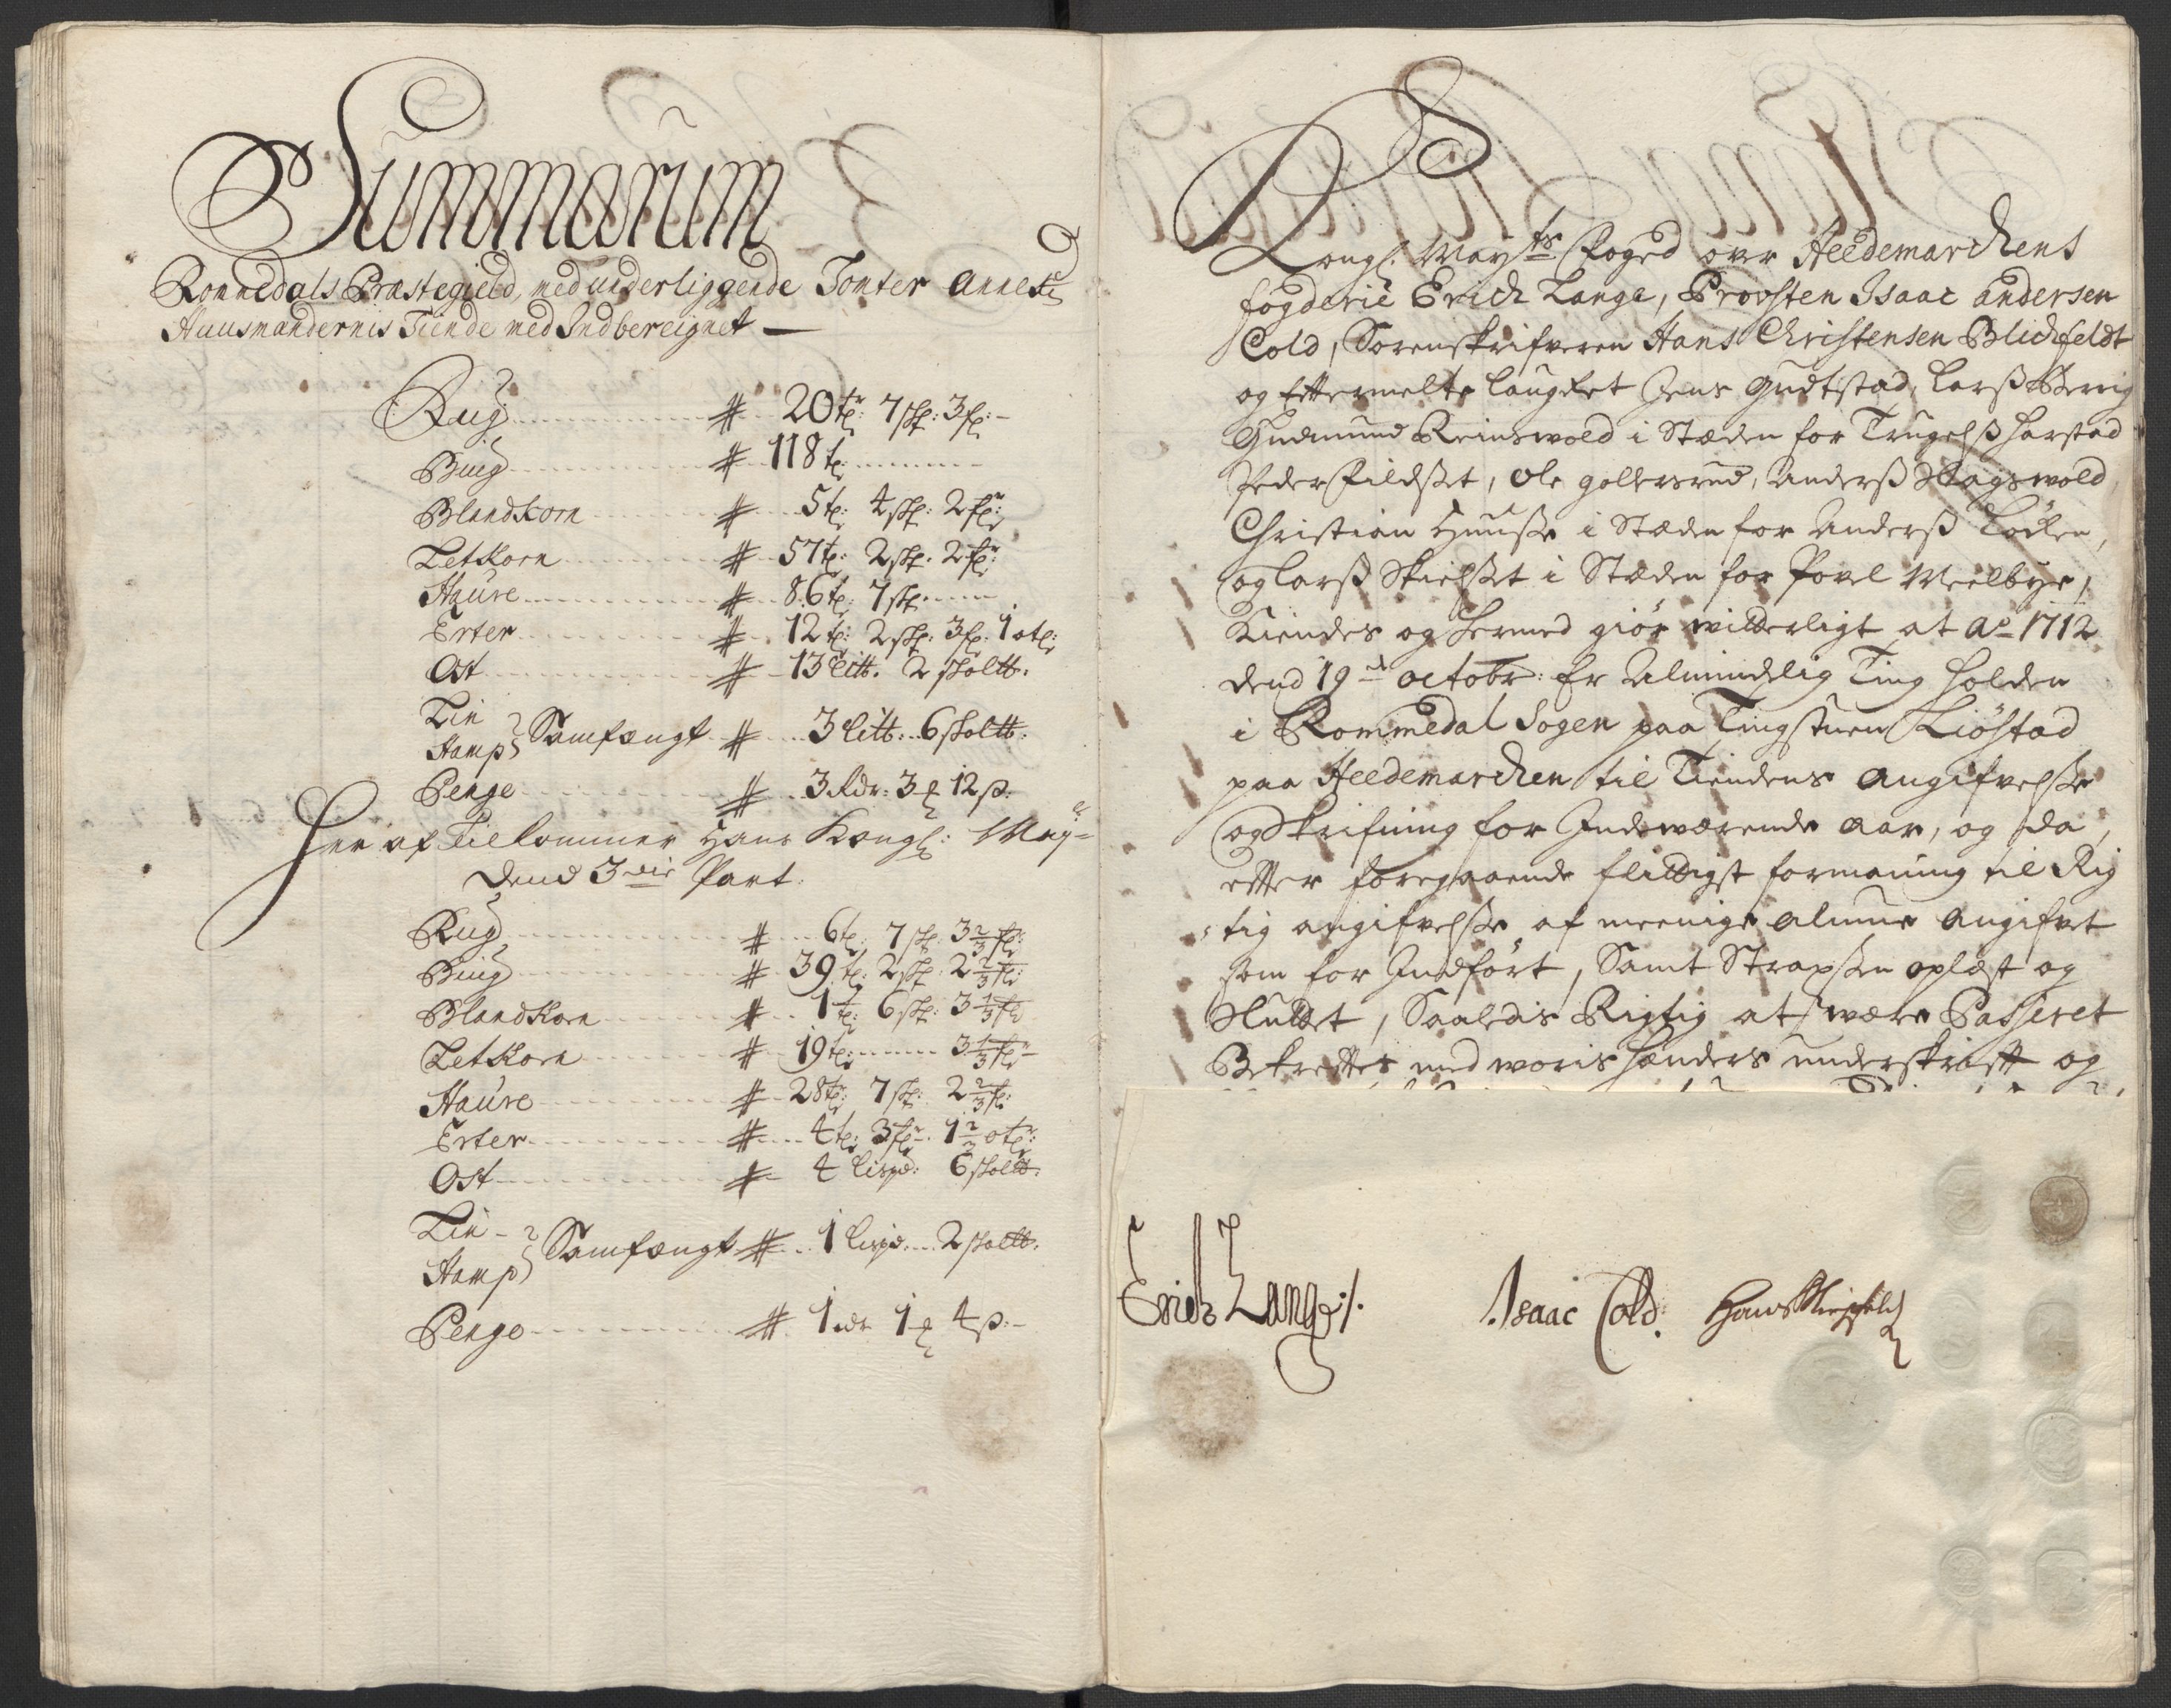 Summarum
Rommedals Præstegield, med underliggende Tonter Annext
Huusmændernis Tiende med Indbereignet
Rug # 20 tr: 7 skp: 3 fr:
Biug # 118 tr
Blandkorn # 5 tr: 4 skp: 2 fr:
Letkorn # 57 tr: 2 skp: 2 fr:
Haure # 86 tr: 7 skp:
Erter # 12 tr: 2 skp: 3 fr: 1 otr:
Ost # 13 litt: 2 skoltt:
Lin
Hamp } Samfængt # 3 litt: 6 skoltt:
Penge # 3 Rdr: 3 ₰ 12 ß:
Her af Tilkommer Hans Kongl: May:
Dend 3die Part.
Rug # 6 tr: 7 skp: 3 2/3 fr:
Biug # 39 tr: 2 skp: 2 2/3 fr:
Blandkorn # 1 tr: 6 skp: 3 1/3 fr
Letkorn # 19 tr: 3 1/3 fr
Haure # 28 tr: 7 skp: 2 2/3 fr:
Erter # 4 tr: 3 fr: 1 2/3 otr:
Ost # 4 lispd: 6 skoltt:
Lin
Hamp } Samfængt # 1 lispd: 2 skoltt:
Penge # 1 rdr 1 ₰ 4 ß:
Kongl: Mayts Foged over Heedemarchens
fogderie Erich Lange, Provsten Isaac Andersen
Cold, Sorenskrifveren Hans Christensen Blichfeldt
og Eftermelte laugret Jens Gudtstad, Larß Berrig
Gudmund Reinswold i Stæden for Trugelß Harstad
Peder Fieldset, Ole gollersrud, Anderß Hagswold,
Christian Huuse i Stæden for Anderß Löcken,
og Larß Skielset i Stæden for Povel Meelbye,
Kiendes og hermed giör witterligt at Ao 1712
dend 19de octobr: Er Almindelig Ting holden
i Rommedal Sogen paa Tingstuen Kiöstad
paa Heedemarchen til Tiendens Angifvelse
og Skrifning for Indewærende Aar, og da,
efter foregaaende flittigst formaning til Rig
tig angifvelse af meenige Almue Angifvet
som for Indfört, Samt Strax sen oplæst og
Sluttet, Saaledis Rigtig at være Passeret
Bekreftes med woris hænders underskrift og
Erich Lange
Isaac Cold.
Hans Blichfeldt